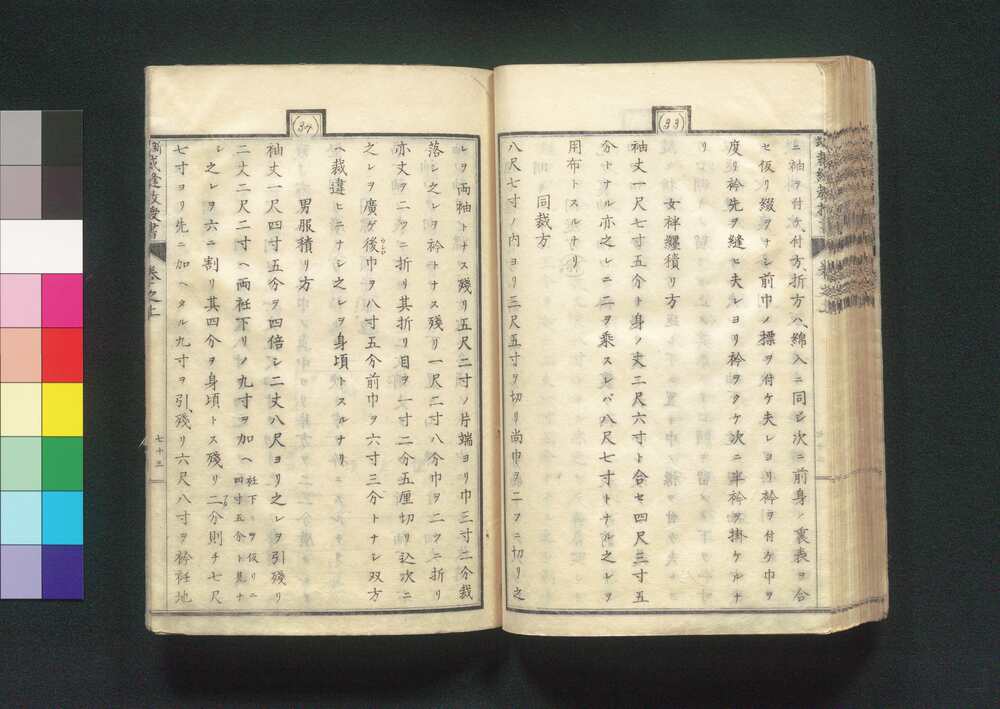 (33)
ニ袖ヲ付ケ付方、折方ハ綿入ニ同ジ次ニ前身ノ裏表ヲ合
セ仮リ綴ヲナシ前巾ノ標ヲ付ケ夫レヨリ衿ヲ付ケ巾ヲ
度リ衿先ヲ縫ヒ夫レヨリ衿ヲクケ次ニ半衿ヲ掛ケルナ
リ
女袢纏積リ方
袖丈一尺七寸五分ト身ノ丈二尺六寸ト合セ四尺三寸五
分トナル亦之レニ二ヲ乗スレバ八尺七寸トナル之レヲ
用布トスルナリ
同裁方
八尺七寸ノ内ヨリ三尺五寸ヲ切リ尚巾ヲ二ツニ切リ之
(34)
レヲ両袖トナス残リ五尺二寸ノ片端ヨリ巾三寸二分裁
落シ之レヲ衿トナス残リ一尺二寸八分巾ヲ二ツニ折リ
亦丈ヲ二ツニ折リ其折リ目ヲ一寸二分五厘切リ込次ニ
之レヲ廣ゲ後巾ヲ八寸五分前巾ヲ六寸三分トナシ双方
ヘ裁違ヒニナシ之レヲ身頃トスルナリ
男服積リ方
袖丈一尺四寸五分ヲ四倍シ二丈八尺ヨリ之レヲ引残リ
二丈二尺二寸ヘ両衽下リノ九寸ヲ加ヘ衽下リヲ仮リニ四寸五分ト見ナ
シ之レヲ六ニ割リ其四分ヲ身頃トス残リ二分則チ七尺
七寸ヨリ先ニ加ヘタル九寸ヲ引、残リ六尺八寸ヲ衿衽地
裁縫教授書
巻之上
七十三